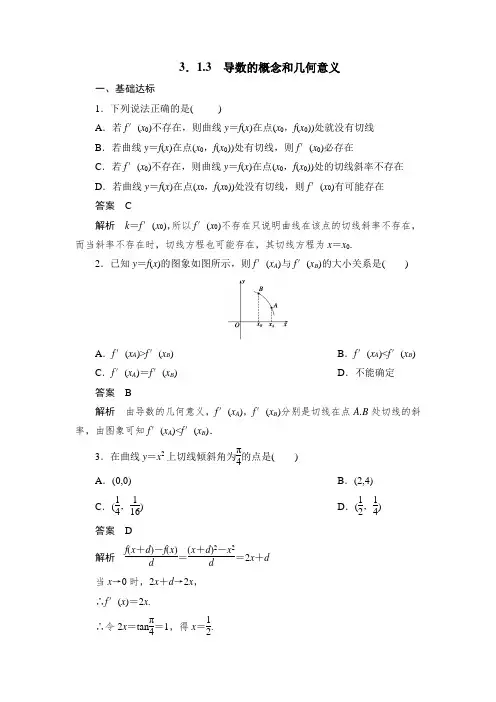 3．1.3　导数的概念和几何意义
一、基础达标
1．下列说法正确的是(　　)
A．若 f′(x₀)不存在，则曲线 y＝f(x)在点(x₀，f(x₀))处就没有切线
B．若曲线 y＝f(x)在点(x₀，f(x₀))处有切线，则 f′(x₀)必存在
C．若 f′(x₀)不存在，则曲线 y＝f(x)在点(x₀，f(x₀))处的切线斜率不存在
D．若曲线 y＝f(x)在点(x₀，f(x₀))处没有切线，则 f′(x₀)有可能存在
答案　C
解析　k＝f′(x₀)，所以 f′(x₀)不存在只说明曲线在该点的切线斜率不存在，
而当斜率不存在时，切线方程也可能存在，其切线方程为 x＝x₀.
2．已知 y＝f(x)的图象如图所示，则 f′(x_A)与 f′(x_B)的大小关系是(　　)
y
B
A
O x_B x_A x
A．f′(x_A)>f′(x_B)　B．f′(x_A)<f′(x_B)
C．f′(x_A)＝f′(x_B)　D．不能确定
答案　B
解析　由导数的几何意义，f′(x_A)，f′(x_B)分别是切线在点 A.B 处切线的斜
率，由图象可知 f′(x_A)<f′(x_B)．
3．在曲线 y＝x² 上切线倾斜角为π/4的点是(　　)
A．(0,0)　B．(2,4)
C．(1/4，1/16)　D．(1/2，1/4)
答案　D
解析　(f(x＋d)－f(x))/d＝((x＋d)²－x²)/d＝2x＋d
当 x→0 时，2x＋d→2x，
∴f′(x)＝2x.
∴令 2x＝tanπ/4＝1，得 x＝1/2.